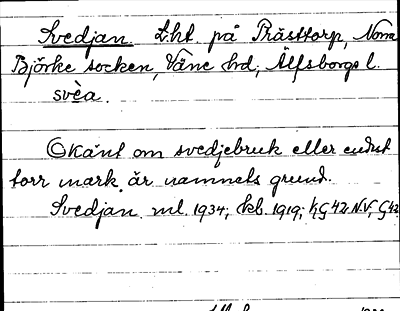 Svedjan. L.ht. på Prästtorp, Norra
Björke socken, Väne hd; Älfsborgs l.
svèa.
Okänt om svedjebruk eller endast
torr mark är namnets grund.
Svedjan ml. 1934; kb. 1919; k, G 42 N.V., G 42